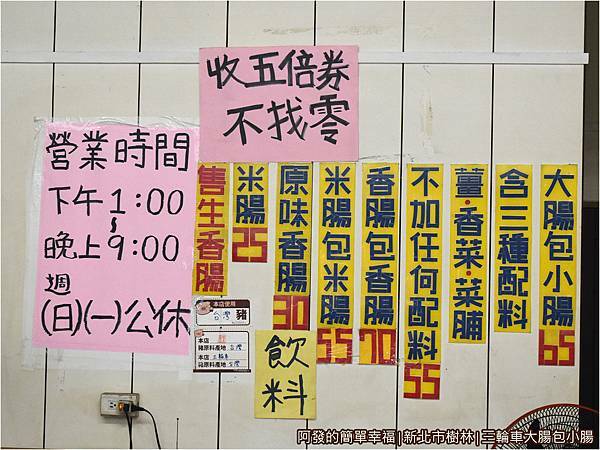 收五倍券
不找零
營業時間
下午1:00
~
晚上9:00
週
(日)(一)公休
大腸包小腸 65
含三種配料
薑·香菜·菜脯
不加任何配料 55
香腸包香腸 70
米腸包米腸 55
原味香腸 30
米腸 25
售生香腸
本店使用
台灣豬
本店
豬原料產地 台灣
本店
豬原料產地 台灣
飲料
阿發的簡單幸福|新北市樹林|三輪車大腸包小腸